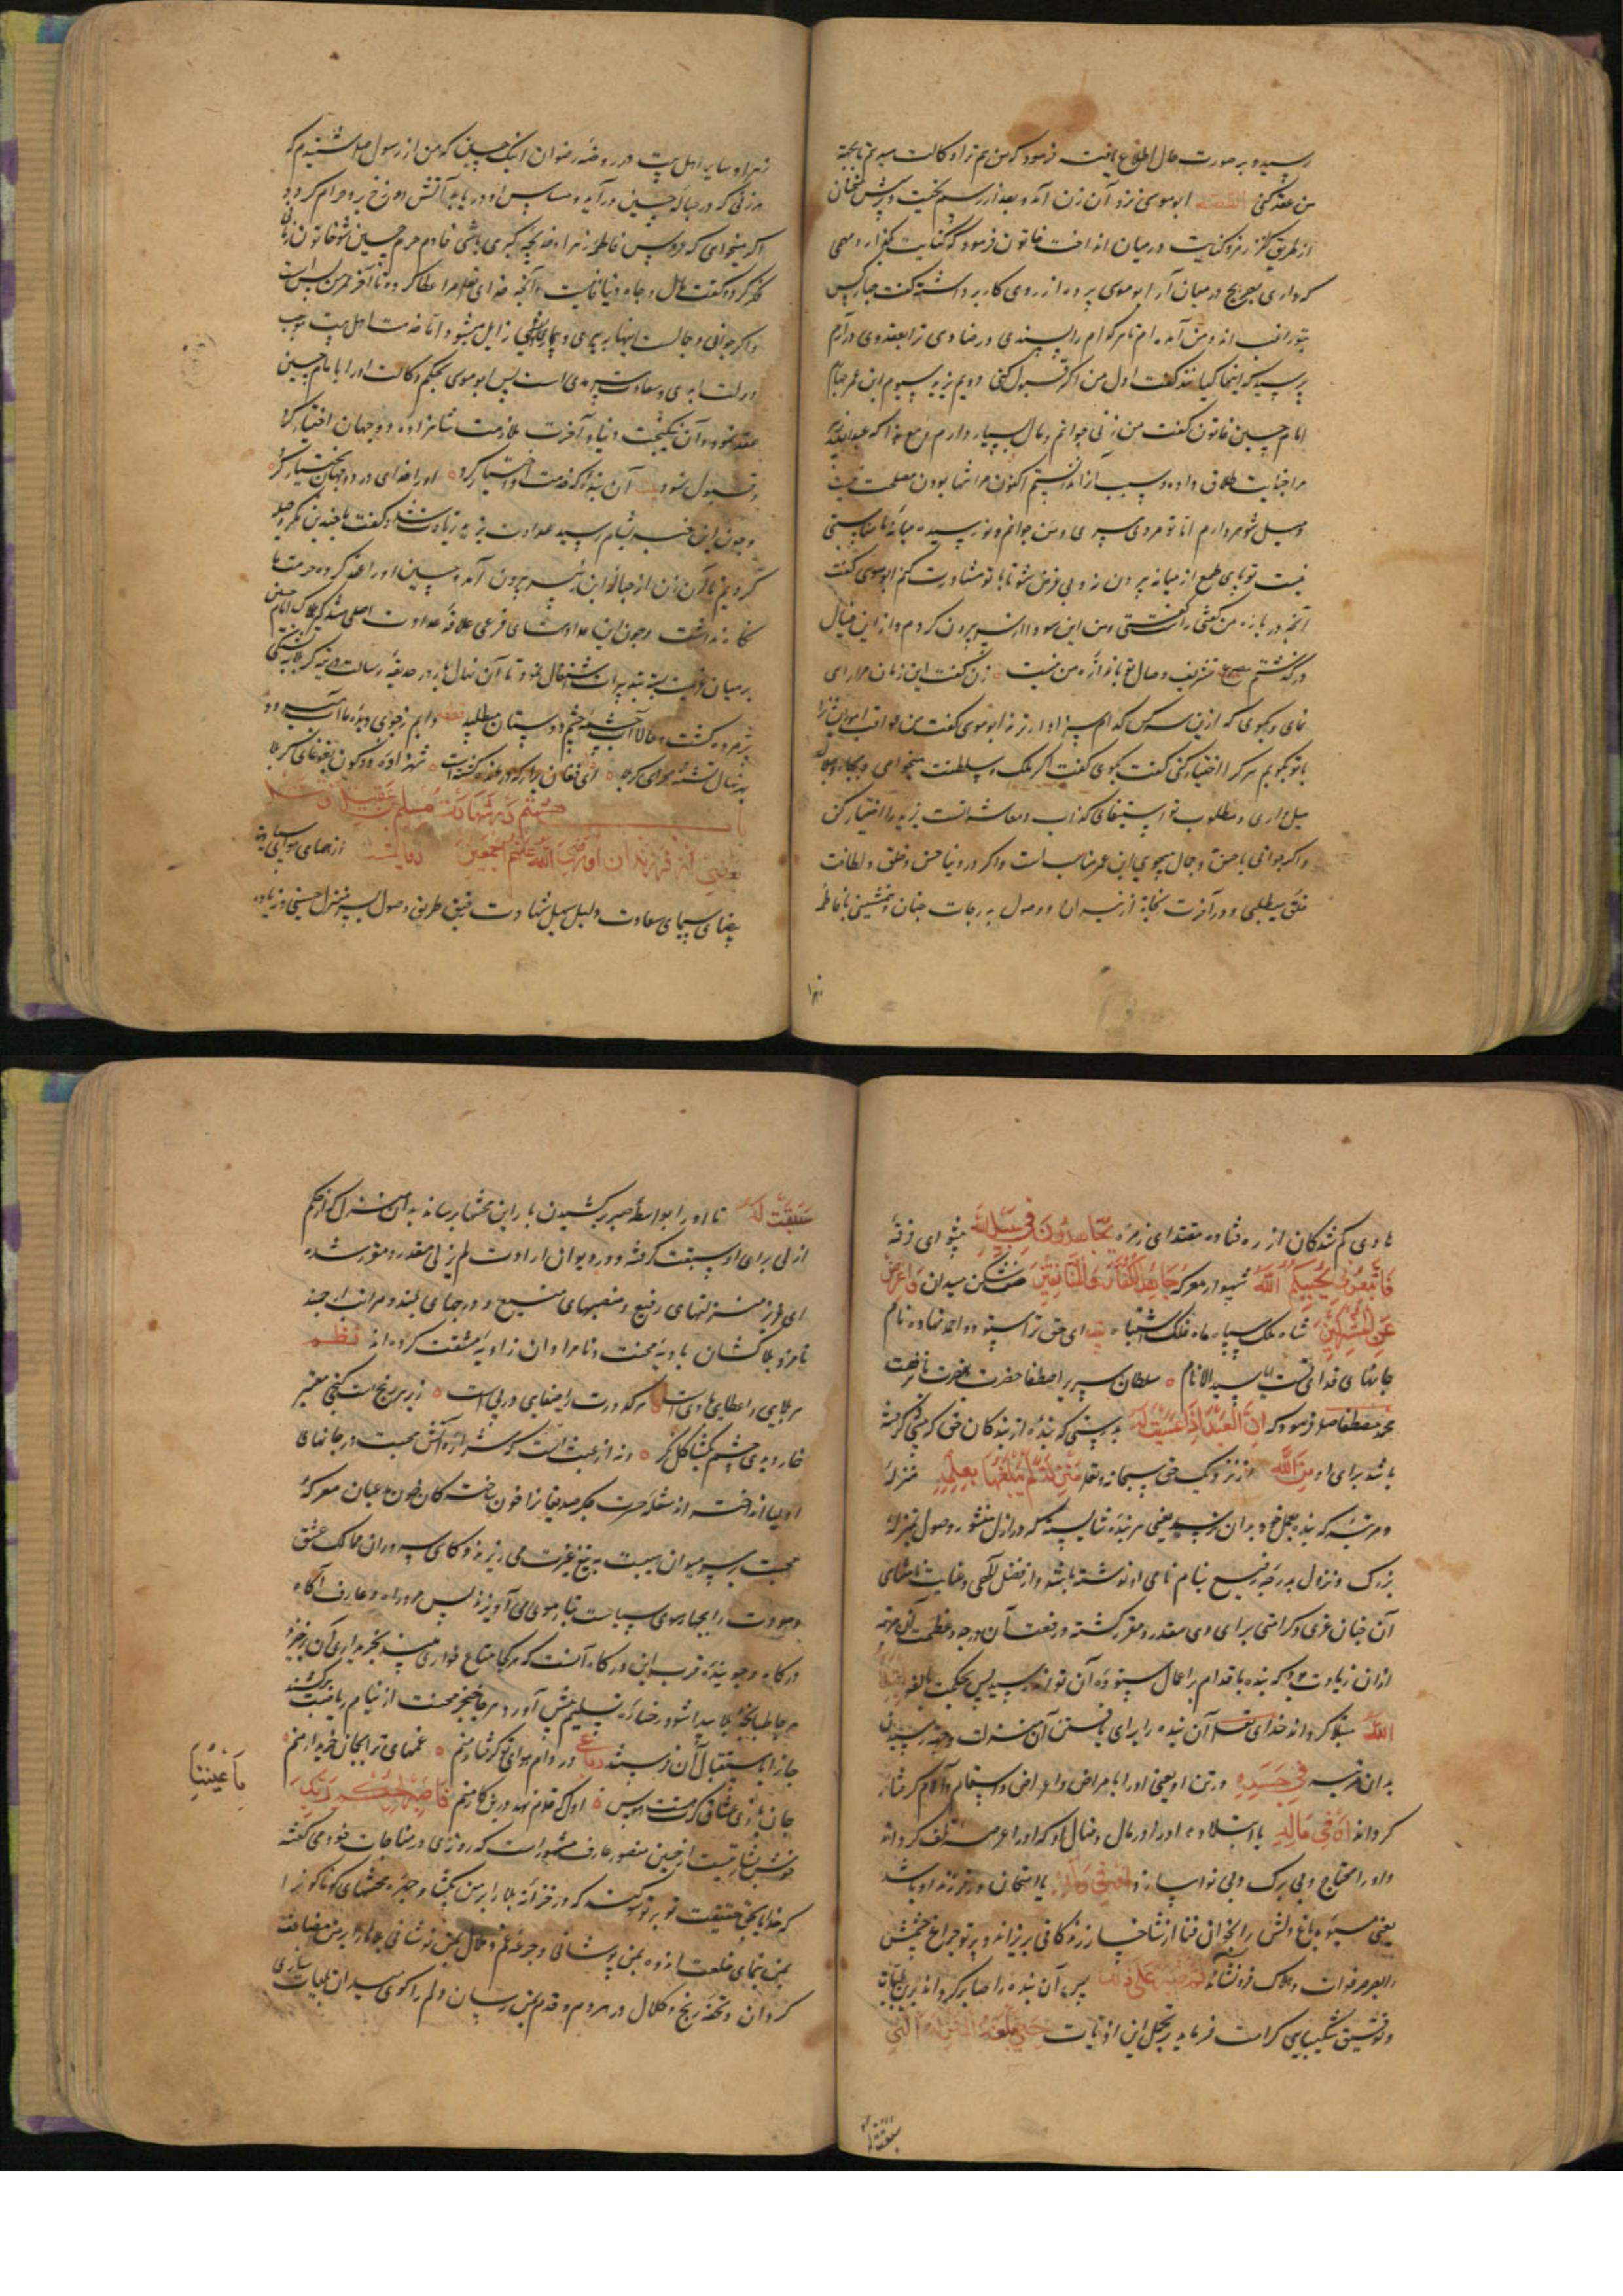 رسید و بر صورت حال اطلاع یافت فرمود که من هم ترا وکالت میدهم تا بجهة
من عقد کنی القصه ابوموسی نزد آن زن آمد و بعد از رسم تحیت و پرسش سخنان
از طریق رمز و کنایت در میان انداخت خاتون فرمود که کنایت بگذار و مهمی
که داری بصریح در میان آر ابوموسی پرده از روی کار برداشته گفت چهار کس
بتو راغب اند و من آمده ام تا هر کدام را پسندی و رضا دهی ترا بعقد وی درآرم
پرسید که اینها کیانند گفت اول من اگر قبول کنی دویم یزید سیوم ابن عمر چهارم
امام حسین خاتون گفت من زنی جوانم و مال بسیار دارم
مرا طلاق داده و اکنون مرا تنها بودن مصلحت نیست
و میل شوهر دارم اما تو مردی پیری و من جوانم و نورسیده میانه ما مناسبتی
نیست تو بی طمع از میانه بیرون رو و بی غرض شو تا با تو مشاورت کنم ابوموسی گفت
آنچه در باره من گفتی راست گفتی و من این سودا از سر بیرون کردم و از این خیال
در گذشتم مصرع تشریف وصال تو باندازه من نیست زن گفت این زمان مرا رای
نمای و بگوی که ازین سه کس کدام سزاوارترند ابوموسی گفت من
با تو بگویم هر کرا اختیار کنی گفت بگوی گفت اگر ملک و سلطنت میخواهی
میل داری و مطلوب تو استیفای لذات و معاشرتست یزید را اختیار کن
و اگر جوانی با حسن و جمال میجویی ابن عمر مناسب است و اگر در دنیا حسن و خلق و لطافت
خلق میطلبی و در آخرت نجاة از نیران و وصول به درجات جنان و همنشینی با فاطمه
زهرا
زهرا و سایر اهل بیت در روضه رضوان اینک حسین که من از رسول صلعم شنیدم که
هر زنی که در حباله حسین درآید و مساس او دریابد آتش دوزخ بر وی حرام گردد
اگر میخواهی که عروس فاطمه زهرا و خدیجه کبری باشی خادم حرم حسین شو خاتون زمانی
فکر کرد و گفت مال و جاه دنیا فانیست و آنچه خدای تعالی مرا عطا کرده تا آخر عمر من بس است
و اگر جوانی و جمالست اینها به پیری و بیماری زایل میشود اما خدمت اهل بیت موجب
دولت ابدی و سعادت سرمدی است پس ابوموسی بحکم وکالت او را با امام حسین
عقد نمود و آن نیکبخت دنیا و آخرت ملازمت شاهزاده دو جهان اختیار کرد
و قبول نمود بیت آن بنده که خدمت او اختیار کرد او را خدای در دو جهان بختیار کرد
و چون این خبر بشام رسید عداوت یزید زیادت شد و گفت ما بچندین مکر و حیله
کردیم تا آن زن از حباله ابن زبیر بیرون آمد و حسین او را عقد کرد و حرمت ما
نگاه نداشت و چون این عداوتهای فرعی علاقه عداوت اصلی شد
بر میان بسته بتدبیرات اشتغال نمود تا آن نهال بارور حدیقه رسالت در کربلا به تشنگی
پژمرده گشت و حالا آب از چشمه چشم دوستان میطلبد قطعه دایم ز جوی دیده ما آب میرود
بر نهال تشنه صحرای کربلا ای فغان برآر که در غصه کشته است شهزاده دو کون بغوغای کربلا
باب هشتم در شهادت مسلم بن عقیل و قتل
بعضی از فرزندان او رضی الله عنهم اجمعین
بیضای سیمای سعادت دلیل سبیل شهادت رفیق طریق وصول بسر منزل حسنی و زیاده
هادی گم شدگان از ره فتاده مقتدای زمره یجاهدون فی سبیل الله پیشوای فرقه
فاتبعونی یحببکم الله شهسوار معرکه جاهد الکفار و المنافقین صف شکن میدان و اعرض
عن المشرکین شاه ملک سپاه ماه فلک اشتباه بیت ای حق ترا ستوده و احمد نهاده نام
جانهای ما فدای تست یا سید الانام سلطان سریر اصطفا حضرت
محمد مصطفی صلعم فرمود که ان العبد اذا سبقت له بدرستی که بنده از بندگان حق که پیشی گرفته
باشد برای او من الله از نزدیک حق سبحانه و تعالی منزلة لم یبلغها بعمله منزله
و مرتبه که بنده بعمل خود بدان نرسد یعنی هر بنده شایسته که در ازل منشور وصول بمنزله
بزرگ و نزول بدرجه رفیع بنام نامی او نوشته باشد و از فضل الهی و عنایت نامتناهی
آن چنان عزی و کرامتی برای وی مقدر و مقرر گشته و رفعت آن درجه و عظمت آن مرتبه
از آن زیادت بود که بنده باقدام اعمال ستوده آن تواند رسید پس بحکمت بالغه ابتلاه
الله مبتلا گرداند خدای تعالی آن بنده را برای یافتن آن منزلت و جهت رسیدن
بدان مرتبه فی جسده در تن او یعنی او را بامراض و اعراض و اسقام و آلام گرفتار
گرداند او فی ماله یا ابتلا دهد او را در مال و منال او که او را عرضه تلف گرداند
و او را محتاج و بی برگ و بی نوا سازد او فی ولده یا امتحان در فرزند او باشد
یعنی میوه باغ دلش را بخزان فنا از شاخسار زندگانی بریزاند و پرتو چراغ چشمش
را بصرصر فوات و هلاک فرو نشاند ثم صبره علی ذلک پس آن بنده را صابر گرداند برین بلیات
و توفیق شکیبایی کرامت فرماید بر تحمل این اذیات حتی یبلغه المنزلة التی
سبقت له
سبقت له تا او را بواسطه صبر بر کشیدن بار این محنتها برساند بدان منزل که از حکم
ازلی برای او سبقت گرفته و در دیوان ارادت لم یزلی مقدر و مقرر شده
ای عزیز منزلتهای رفیع و منصبهای منیع و درجهای بلند و مراتب ارجمند
نامزد بلاکشان بادیه محنت و نامرادان زاویه مشقت کرده اند نظم
هر بلایی را عطایی با وی است هر کدورت را صفایی در پی است زیر هر رنجست گنجی معتبر
خار دیدی چشم بگشا گل نگر و نه از عبث است که شراره آتش محبت در جانهای
اولیا انداخته از شعله حیرت جگر صدیقان را خون ساخته گاه خون اعیان معرکه
محبت بر سر میدان هیبت به تیغ غیرت می ریزند و گاهی سروران ممالک عشق
و مودت را بجای موی می آویزند پس مرد راه و عارف آگاه
درگاه و جوینده قرب این درگاه آنست که هر کجا متاع خواری بیند بخریداری آن برخیزد
هر جا طپانچه بلا پیدا شود رخساره تسلیم پیش آورد و هر جا خنجر محنت از نیام ریاضت برکشند
جان را باستقبال آن فرستد رباعی در دام هوای تو گرفتار منم غمهای ترا بجان خریدار منم
جان بازی عشاق گرت هست هوس اول که قدم نهد درین کار منم فاصبر لحکم ربک
باعیننا
خوش بشارتیست از حسین منصور عارف مشهور است که روزی در مناجات خود می گفته
که خدایا بحق حقیقت تو بر تو سوگند که در خزانه بلا را بر من بگشا و چهره محنتهای گوناگون را
بمن بنمای خلعت اندوه بمن پوشانی و جرعه غم و ملال بمن نوشانی
گردان و تحفه رنج و کلال در هر دم و قدم بمن رسان و دلم را گوی میدان بلیات سازی